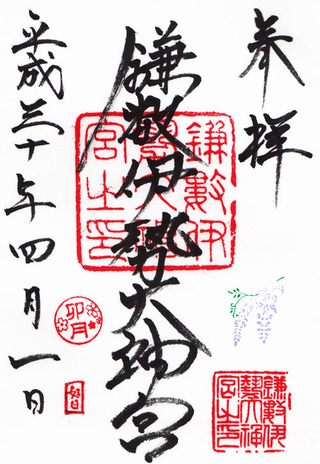 奉拝
鎌数伊勢大神宮
平成三十年四月一日
鎌數伊
勢大神
宮之印
卯月
鎌數伊
勢大神
宮之印